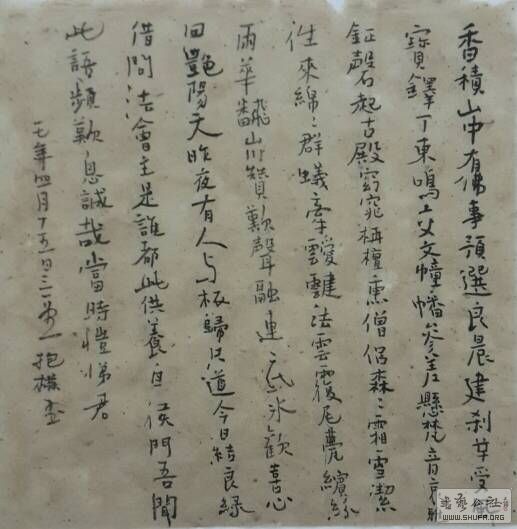 香積山中有佛事預選良晨建刹竿受
寶鐸丁東鳴上文幢幡參差懸梵音
鉦磬石起古殿窈窕栴檀熏僧侶森々霜雪潔
往來綿々群蟻牽靉靆法雲覆尾甍繽紛
雨華翻飛山川贊歎聲融連底氷歡喜心
回艷陽天昨夜有人与板歸只道今日結良緣
借問法會主是誰都此供養自侯門吾聞
此語頻歎息誠哉當時愷悌君
七年四月十五日 抱樸
WWW.SHUFA.ORG